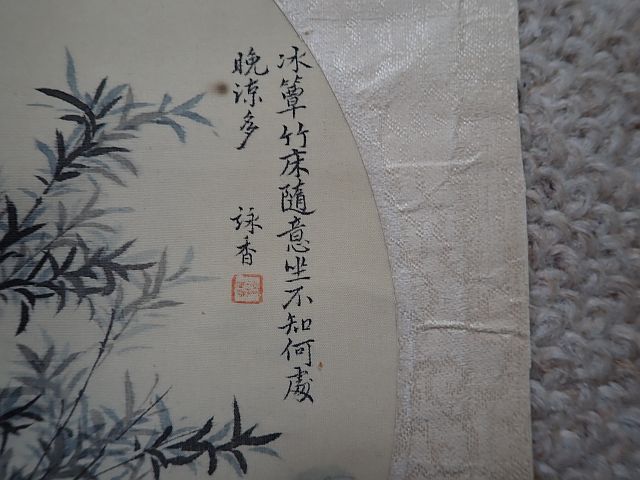 冰簟竹床隨意坐不知何處
晚涼多
詠香